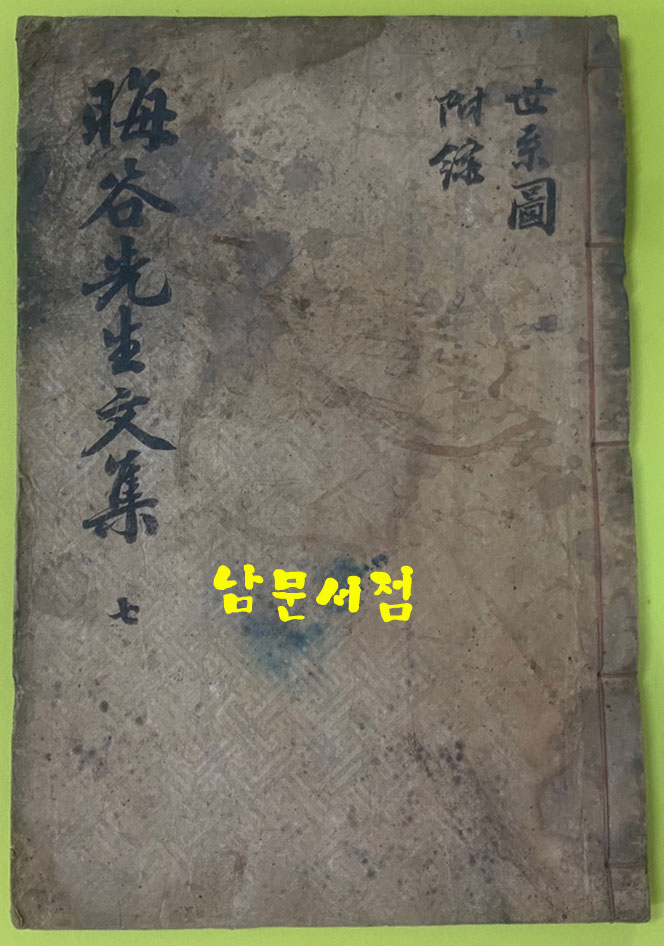 世系圖
附錄
晦谷先生文集
七
남문서점